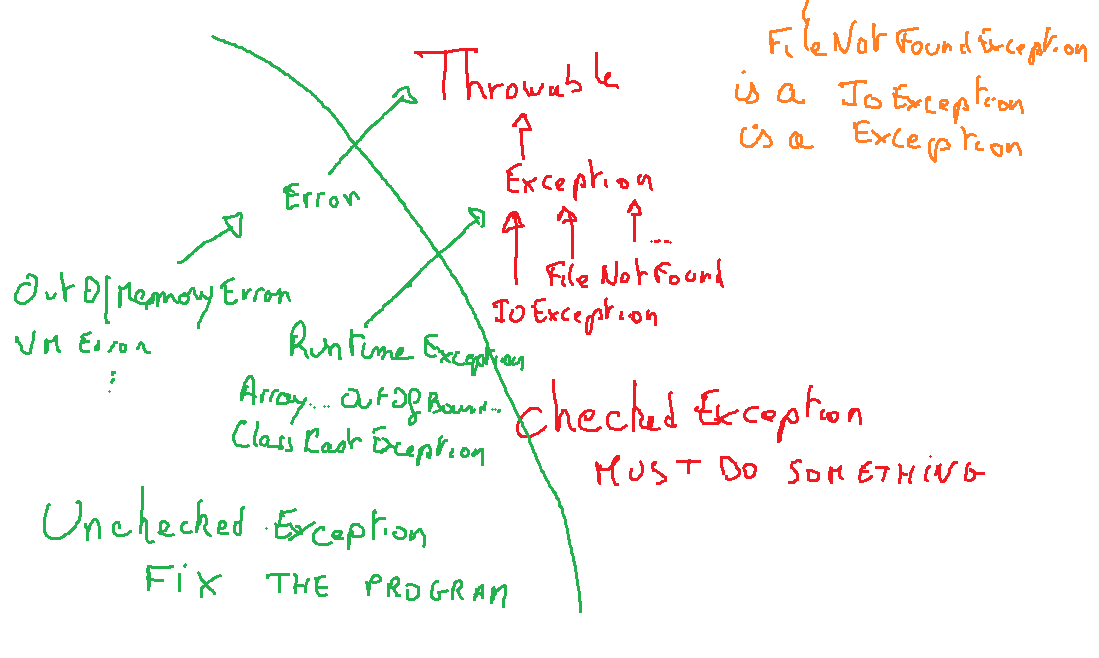 FileNotFoundException
is a IoException
is a Exception
Throwable
Exception
Error
...
FileNotFound
IOException
OutOfMemoryError
VM Error
⋮
Runtime Exception
Array... OutOfBound...
ClassCastException
Checked Exception
MUST DO SOMETHING
Unchecked Exception
FIX THE PROGRAM